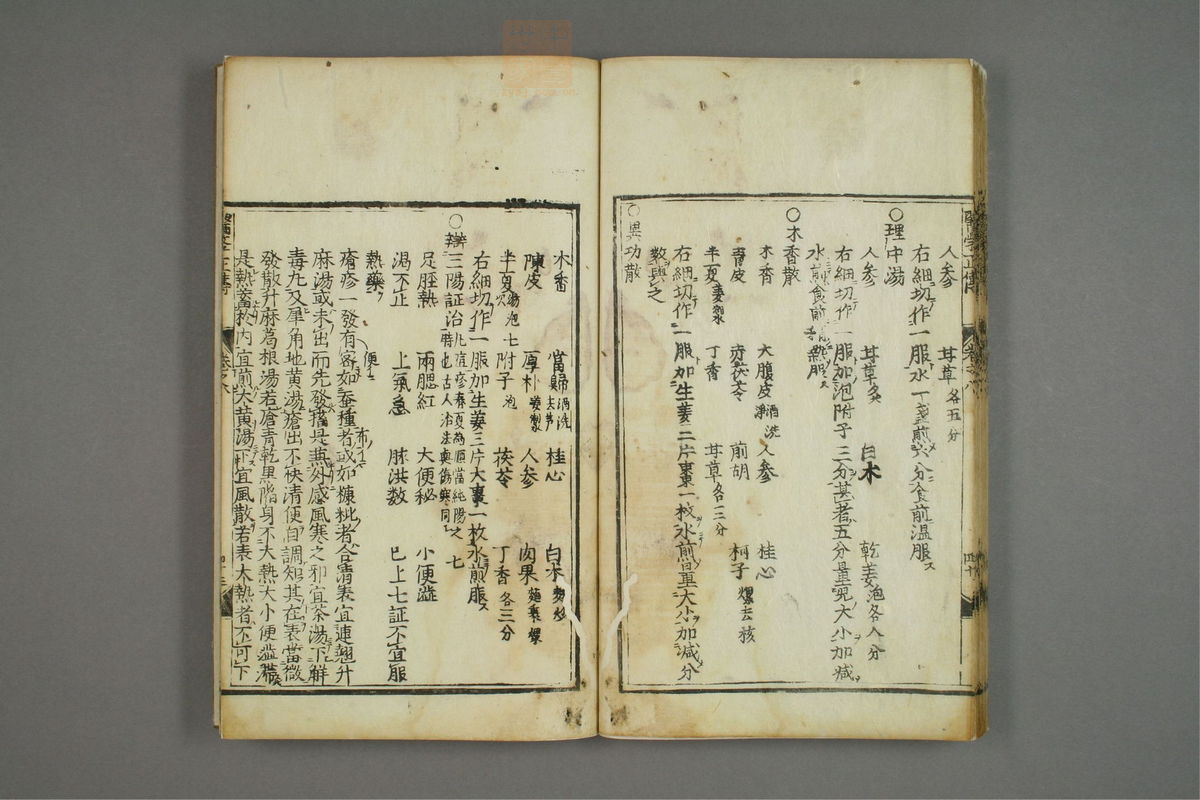 人参 甘草各五分
右細切作一服水一盞煎六分食前温服
○理中湯
人参 甘草炙 白术 乾姜泡各八分
右細切作一服加泡附子三分甚者五分量児大小加减
水煎食前熱服
○木香散
木香 大腹皮酒洗淨 人参 桂心
青皮 赤茯苓 前胡 柯子煨去核
半夏姜製 丁香 甘草各三分
右細切作一服加生姜二片東棗一枚水煎量大小加减分
数與之
○異功散
木香 當歸酒洗去芦 桂心 白术麩炒
陳皮 厚朴姜製 人参 肉果麺裹煨
半夏湯泡七次 附子泡 茯苓 丁香各三分
右細切作一服加生姜三片大棗一枚水煎服
○辯三陽証治凡痘疹春夏為順當純陽之時也古人治法與傷寒同 七
足脛熱 兩腮紅 大便秘 小便澁
渇不止 上氣急 脉洪数 已上七証不宜服
熱藥
瘡疹一發有密如蚕種者或如糠粃者合清表宜連翹升
麻湯或未出而先發搐是兼外感風寒之邪宜茶湯下解
毒丸及犀角地黄湯瘡出不快清便自調知其在表當微
發散升麻葛根湯若瘡青乾黒陷身不大熱大小便澁滞
是熱蓄於内宜煎大黄湯下宜風散若表大熱者不可下